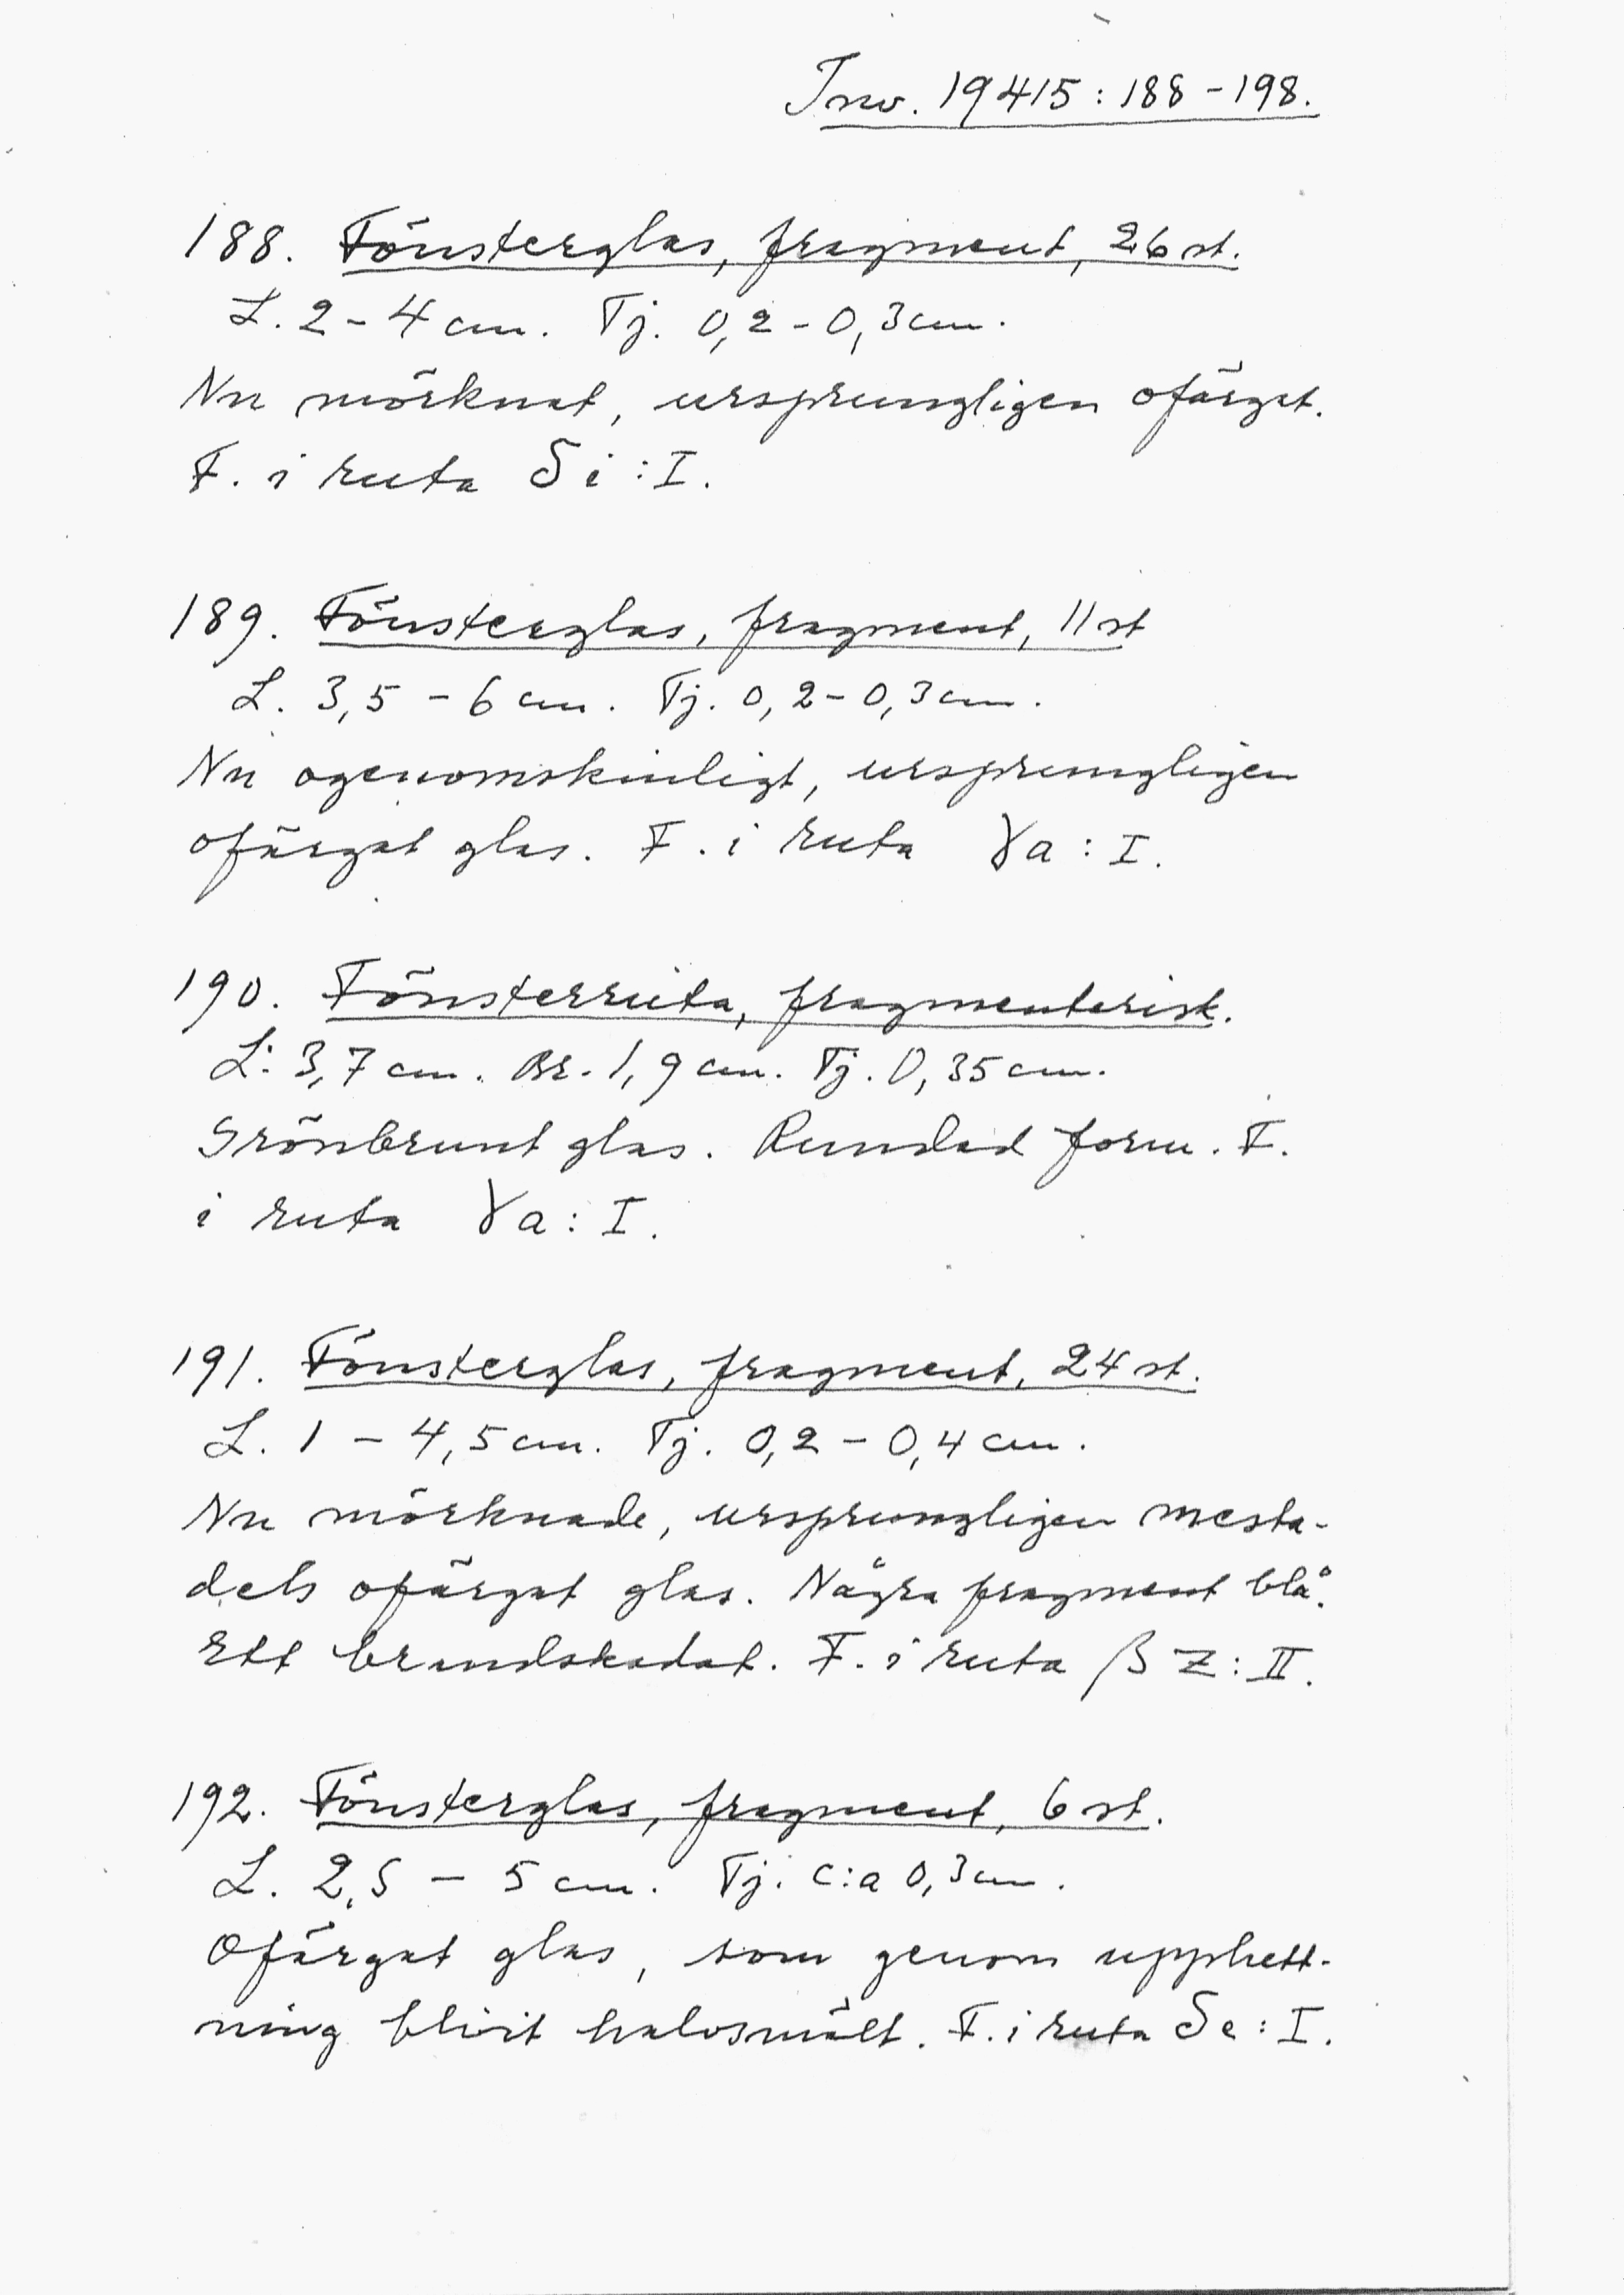 Inv. 19415:188-198.
188. Fönsterglas, fragment, 26 st.
L. 2-4 cm. Tj. 0,2-0,3 cm.
Nu mörknat, ursprungligen ofärgat.
F. i ruta δi:I.
189. Fönsterglas, fragment, 11 st
L. 3,5-6 cm. Tj. 0,2-0,3 cm.
Nu ogenomskinligt, ursprungligen
ofärgat glas. F. i ruta γa:I.
190. Fönsterruta, fragmentarisk.
L: 3,7 cm. Br. 1,9 cm. Tj. 0,35 cm.
Grönbrunt glas. Rundad form. F.
i ruta γa:I.
191. Fönsterglas, fragment, 24 st.
L. 1-4,5 cm. Tj. 0,2-0,4 cm.
Nu mörknade, ursprungligen mesta-
dels ofärgat glas. Några fragment blå.
Ett brandskadat. F. i ruta βz:II.
192. Fönsterglas, fragment, 6 st.
L. 2,5-5 cm. Tj. c:a 0,3 cm.
Ofärgat glas, som genom upphett-
ning blivit halvsmält. F. i ruta δe:I.